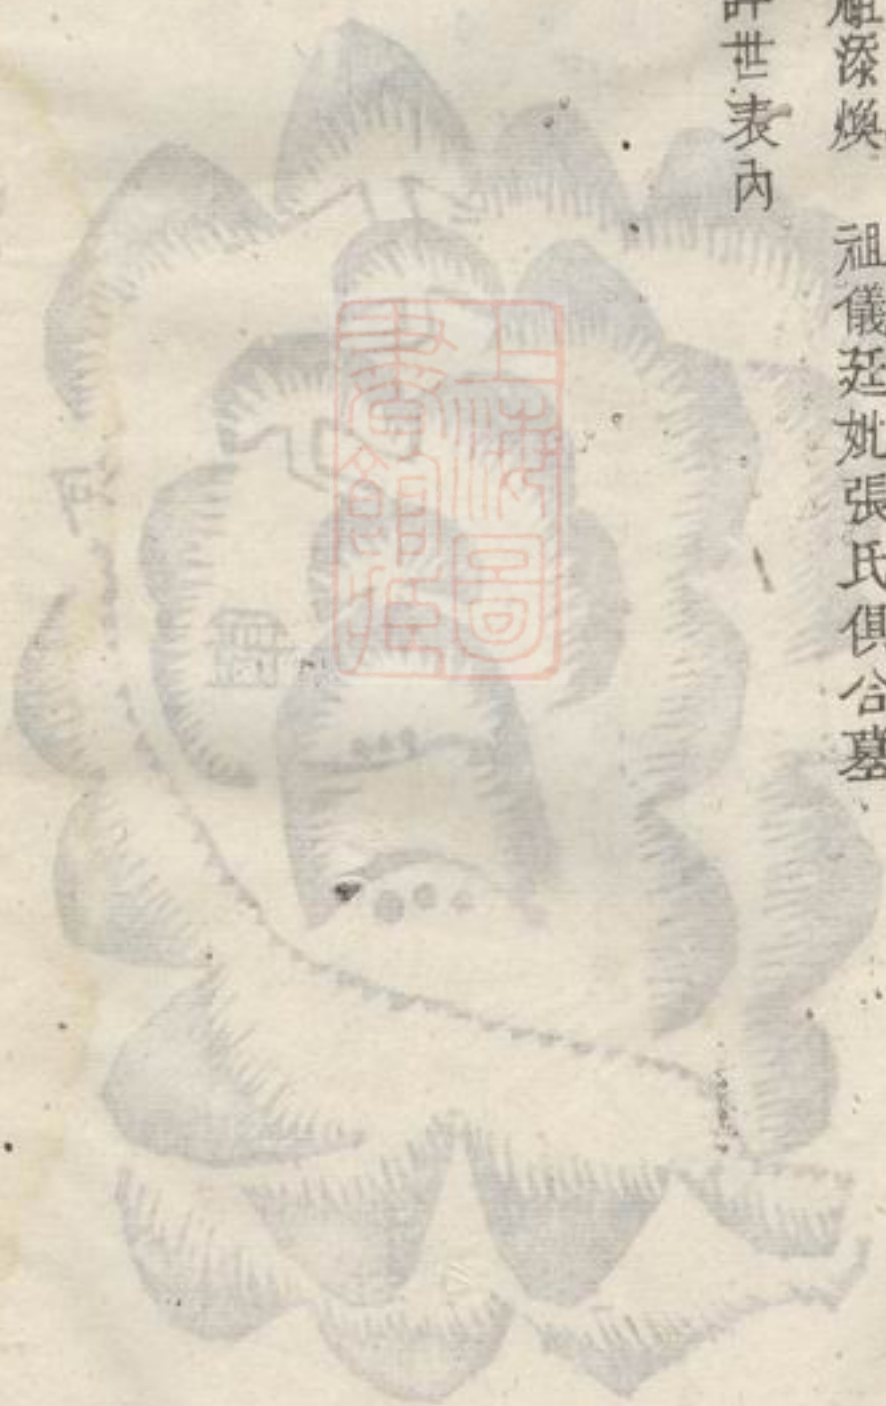 祖深煥　祖儀廷妣張氏俱合墓
詳世表內
上海圖書館藏